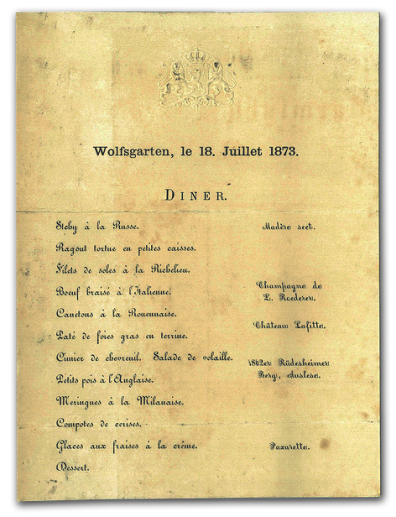 Wolfsgarten, le 18. Juillet 1873.
DINER.
Stoby à la Russe. Madère sect.
Ragout tortue en petites caisses.
Filets de soles à la Richelieu.
Boeuf braisé à l'Italienne. Champagne de
L. Roederer.
Canetons à la Rouennaise.
Château Lafitte.
Paté de foies gras en terrine.
Cimier de chevreuil. Salade de volaille. 1862er Rüdesheimer
Berg, Auslese.
Petits pois à l'Anglaise.
Meringues à la Milanaise.
Compotes de cerises.
Glaces aux fraises à la crême. Paxarette.
Dessert.